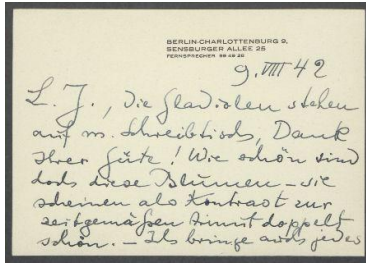 BERLIN-CHARLOTTENBURG 9,
SENSBURGER ALLEE 26
FERNSPRECHER 99 48 20
9. VIII 42
L. J., die Gladiolen stehen
auf m. Schreibtisch, Dank
Ihrer Güte! Wie schön sind
doch diese Blumen – sie
scheinen als Kontrast zur
zeitgemäßen doppelt
schön. – Ich bringe auch jedes